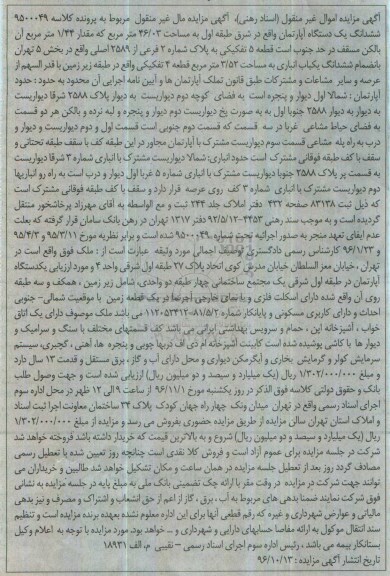 آگهی مزایده اموال غیر منقول (اسناد رهنی)، آگهی مزایده مال غیر منقول مربوط به پرونده کلاسه ۹۵۰۰۰۴۹
ششدانگ یک دستگاه آپارتمان واقع در شرق طبقه اول به مساحت ۴۶/۰۳ متر مربع که مقدار ۱/۴۴ متر مربع آن
بالکن مسقف در حد جنوب است قطعه ۵ تفکیکی به پلاک شماره ۲ فرعی از ۲۵۸۹ اصلی واقع در بخش ۵ تهران
بانضمام ششدانگ یکباب انباری به مساحت ۳/۵۲ متر مربع قطعه ۴ تفکیکی واقع در طبقه زیر زمین با قدر السهم از
عرصه و سایر مشاعات و مشترکات طبق قانون تملک آپارتمان ها و آیین نامه اجرایی آن محدود به حدود : حدود
آپارتمان : شمالا اول دیوار و پنجره است به فضای کوچه دوم دیواریست به دیوار پلاک ۲۵۸۸ شرقا دیواریست
به دیوار به دیوار ۲۵۸۸ جنوبا اول به به صورت پخ دیواریست دوم دیوار و پنجره و لبه نرده و بالکن هر دو قسمت
به فضای حیاط مشاعی غربا در سه قسمت که قسمت دوم جنوبی است قسمت اول و دوم دیواریست و دیوار و
درب به راه پله مشاعی قسمت سوم دیواریست مشترک با آپارتمان مجاور در این طبقه کف با سقف طبقه تحتانی و
سقف با کف طبقه فوقانی مشترک است حدود انباری: شمالا دیواریست مشترک با انباری شماره ۳ شرقا دیواریست
به قسمت پر پلاک ۲۵۸۸ جنوبا دیواریست مشترک با انباری شماره ۵ غربا اول دیوار و درب است به راه رو انباریها
دوم دیواریست مشترک با انباری شماره ۳ کف روی عرصه قرار دارد و سقف با کف طبقه فوقانی مشترک است
که ذیل ثبت ۸۳۱۳۸ صفحه ۴۳۲ دفتر املاک جلد ۲۴۴ ثبت و مع الواسطه به آقای مهرزاد پرخاشخور منتقل
گردیده است و به موجب سند رهنی ۴۴۵۳-۹۲/۵/۱۲ دفتر ۱۳۱۷ تهران در رهن بانک سامان قرار گرفته که بعلت
عدم ایفای تعهد منجر به صدور اجرائیه تحت شماره ۹۵۰۰۰۴۹ شده است و برابر نظریه مورخ ۹۵/۳/۱۱ و ۹۵/۴/۳
و ۹۶/۱/۲۳ کارشناس رسمی دادگستری توصیف اجمالی مورد وثیقه عبارت است از : ملک فوق واقع است در
تهران ، خیابان معز السلطان خیابان مدرس کوی اتحاد پلاک ۲۷ طبقه اول شرقی واحد ۴ و مورد ارزیابی یکدستگاه
آپارتمان در طبقه اول شرقی یک مجتمع ساختمانی چهار طبقه دو واحدی، شامل زیر زمین ، همکف و سه طبقه
روی آن واقع شده دارای اسکلت فلزی و با نمای خارجی آجرنما در یک قطعه زمین با موقعیت شمالی- جنوبی
احداث و دارای کاربری مسکونی و پایانکار شماره ۸۱/۵/۲-۱۱۲۰۵۳۴۱۲ می باشد ملک موصوف دارای یک اتاق
خواب ، آشپزخانه اپن ، حمام و سرویس بهداشتی ایرانی می باشد کف قسمتهای مختلف با سنگ و سرامیک و
دیوار ها با کاشی پوشیده شده است کابینت آشپزخانه ام دی اف دربها چوبی و پنجره ها، آهنی ، گچبری، سیستم
سرمایش کولر و گرمایش بخاری و آبگرمکن دیواری و محل دارای آب و گاز ، برق مستقل و قدمت ۱۳ سال دارد
و مبلغ ۱/۳۰۲/۰۰۰/۰۰۰ ریال (یک میلیارد و سیصد و دو میلیون ریال) ارزیابی شده است و جهت وصول طلب
بانک و حقوق دولتی کلاسه فوق الذکر در روز یکشنبه مورخ ۹۶/۱۱/۱ از ساعت ۹ الی ۱۲ ظهر در محل اداره سوم
اجرای اسناد رسمی واقع در تهران میدان ونک چهار راه جهان کودک پلاک ۳۴ ساختمان معاونت اجرا ثبت اسناد
و املاک استان تهران سالن مزایده از طریق مزایده حضوری بفروش می رسد و مزایده از مبلغ ۱/۳۰۲/۰۰۰/۰۰۰
ریال (یک میلیارد و سیصد و دو میلیون ریال) شروع و به بالاترین قیمت که خریدار داشته باشد فروخته خواهد شد
شرکت در جلسه مزایده برای عموم آزاد است و فروش کلا نقدی است چنانچه روز تعیین شده با تعطیل رسمی
مصادف گردد روز بعد از تعطیل جلسه مزایده در همان ساعت و مکان تشکیل خواهد شد طالبین و خریداران می
توانند جهت شرکت در مزایده در وقت مقر با ارائه چک تضمینی بانک ملی به مبلغ پایه در جلسه مزایده به نشانی
فوق شرکت نمایند ضمنا بدهی های مربوط به آب ، برق ، گاز از اعم از حق انشعاب و اشتراک و مصرف و نیز بدهی
مالیاتی و عوارض شهرداری و غیره که رقم قطعی آنها برای این اداره معلوم نشده بعهده برنده مزایده است و تنظیم
سند انتقال موکول به ارائه مفاصا حسابهای دارایی و شهرداری و ... خواهد بود. مورد مزایده با توجه به اعلام وکیل
بستانکار بیمه می باشد ، رئیس اداره سوم اجرای اسناد رسمی – نقیبی م، الف ۱۸۹۳۱
تاریخ انتشار آگهی مزایده : ۹۶/۱۰/۱۳